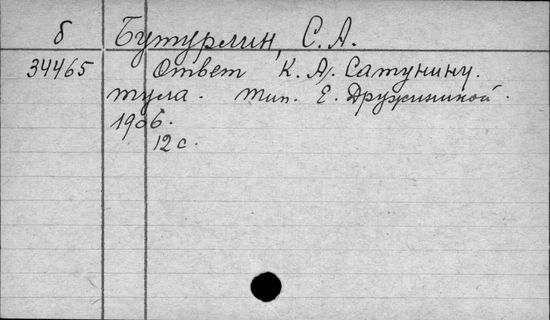 б Бутурлин, С. А.
34465 Ответ К. А. Сатунину.
Тула. Тип. Е. Дружининой.
1906.
12 с.